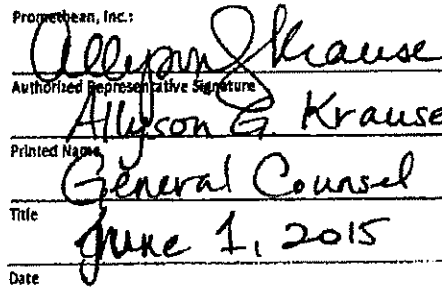 Promethean, Inc.:
Allyson G Krause
Authorized Representative Signature
Allyson G. Krause
Printed Name
General Counsel
Title
June 1, 2015
Date